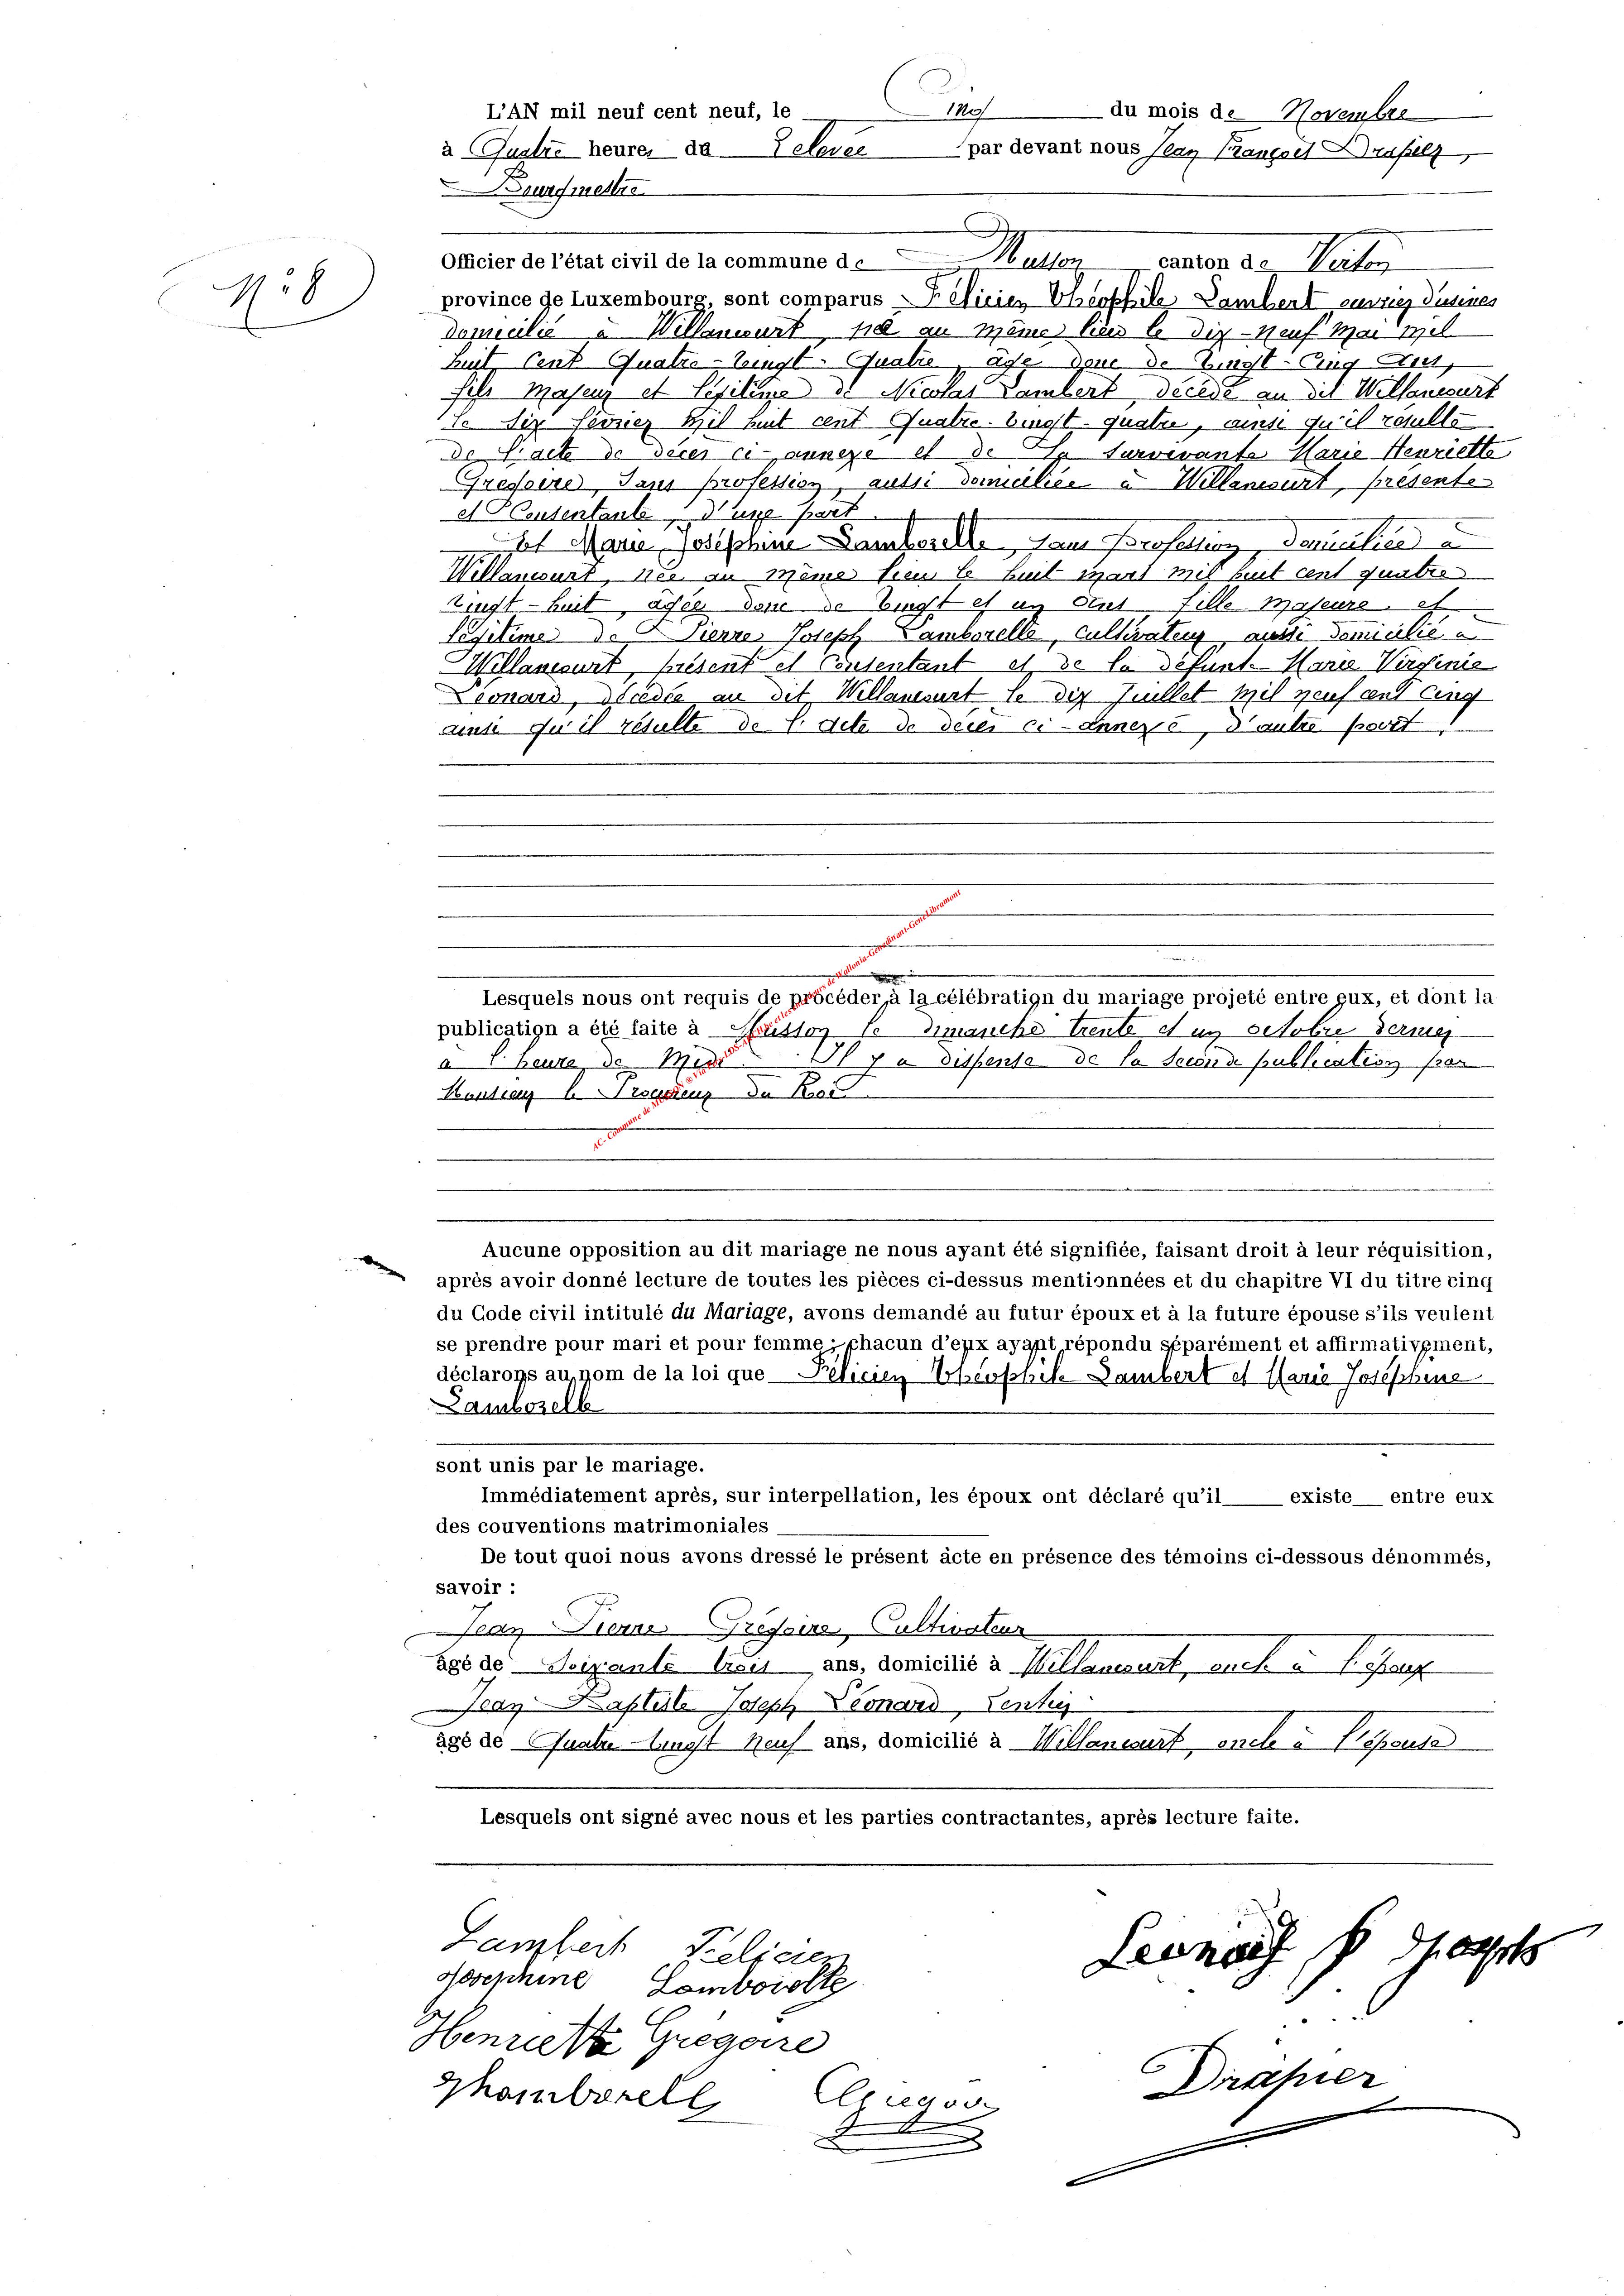 L'AN mil neuf cent neuf, le cinq du mois de Novembre
à Quatre heures du relevée par devant nous Jean François Drapier,
Bourgmestre
N° 8
Officier de l'état civil de la commune de Musson canton de Virton
province de Luxembourg, sont comparus Félicien Théophile Lambert ouvrier d'usines
domicilié à Willancourt, né au même lieu le dix-neuf mai mil
huit cent Quatre-vingt-Quatre, âgé donc de Vingt-Cinq Ans,
fils majeur et légitime de Nicolas Lambert, décédé au dit Willancourt
le dix février mil huit cent Quatre-vingt-quatre, ainsi qu'il résulte
de l'acte de décès ci-annexé et de la survivante Marie Henriette
Grégoire, sans profession, aussi domiciliée à Willancourt, présente
et Consentante, d'une part.
Et Marie Joséphine Lamborelle, sans profession, domiciliée à
Willancourt, née au même lieu le huit mars mil huit cent quatre
vingt-huit, âgée donc de vingt et un Ans fille majeure et
légitime de Pierre Joseph Lamborelle, cultivateur aussi domicilié à
Willancourt, présent et consentant et de la défunte Marie Virginie
Léonard, décédée au dit Willancourt le dix Juillet mil neuf cent cinq
ainsi qu'il résulte de l'acte de décès ci-annexé, d'autre part.
Lesquels nous ont requis de procéder à la célébration du mariage projeté entre eux, et dont la
publication a été faite à Musson le dimanche trente et un octobre dernier
à l'heure de Midi. Il y a dispense de la seconde publication par
Monsieur le Procureur du Roi
Aucune opposition au dit mariage ne nous ayant été signifiée, faisant droit à leur réquisition,
après avoir donné lecture de toutes les pièces ci-dessus mentionnées et du chapitre VI du titre cinq
du Code civil intitulé du Mariage, avons demandé au futur époux et à la future épouse s'ils veulent
se prendre pour mari et pour femme; chacun d'eux ayant répondu séparément et affirmativement,
déclarons au nom de la loi que Félicien Théophile Lambert et Marie Joséphine
Lamborelle
sont unis par le mariage.
Immédiatement après, sur interpellation, les époux ont déclaré qu'il existe entre eux
des couventions matrimoniales
De tout quoi nous avons dressé le présent acte en présence des témoins ci-dessous dénommés,
savoir :
Jean Pierre Grégoire, Cultivateur
âgé de Soixante trois ans, domicilié à Willancourt, oncle à l'époux
Jean-Baptiste Joseph Léonard, Rentier
âgé de Quatre-vingt Neuf ans, domicilié à Willancourt, oncle à l'épouse
Lesquels ont signé avec nous et les parties contractantes, après lecture faite.
Lambert Félicien
Joséphine Lamborelle
Henriette Grégoire
Drapier